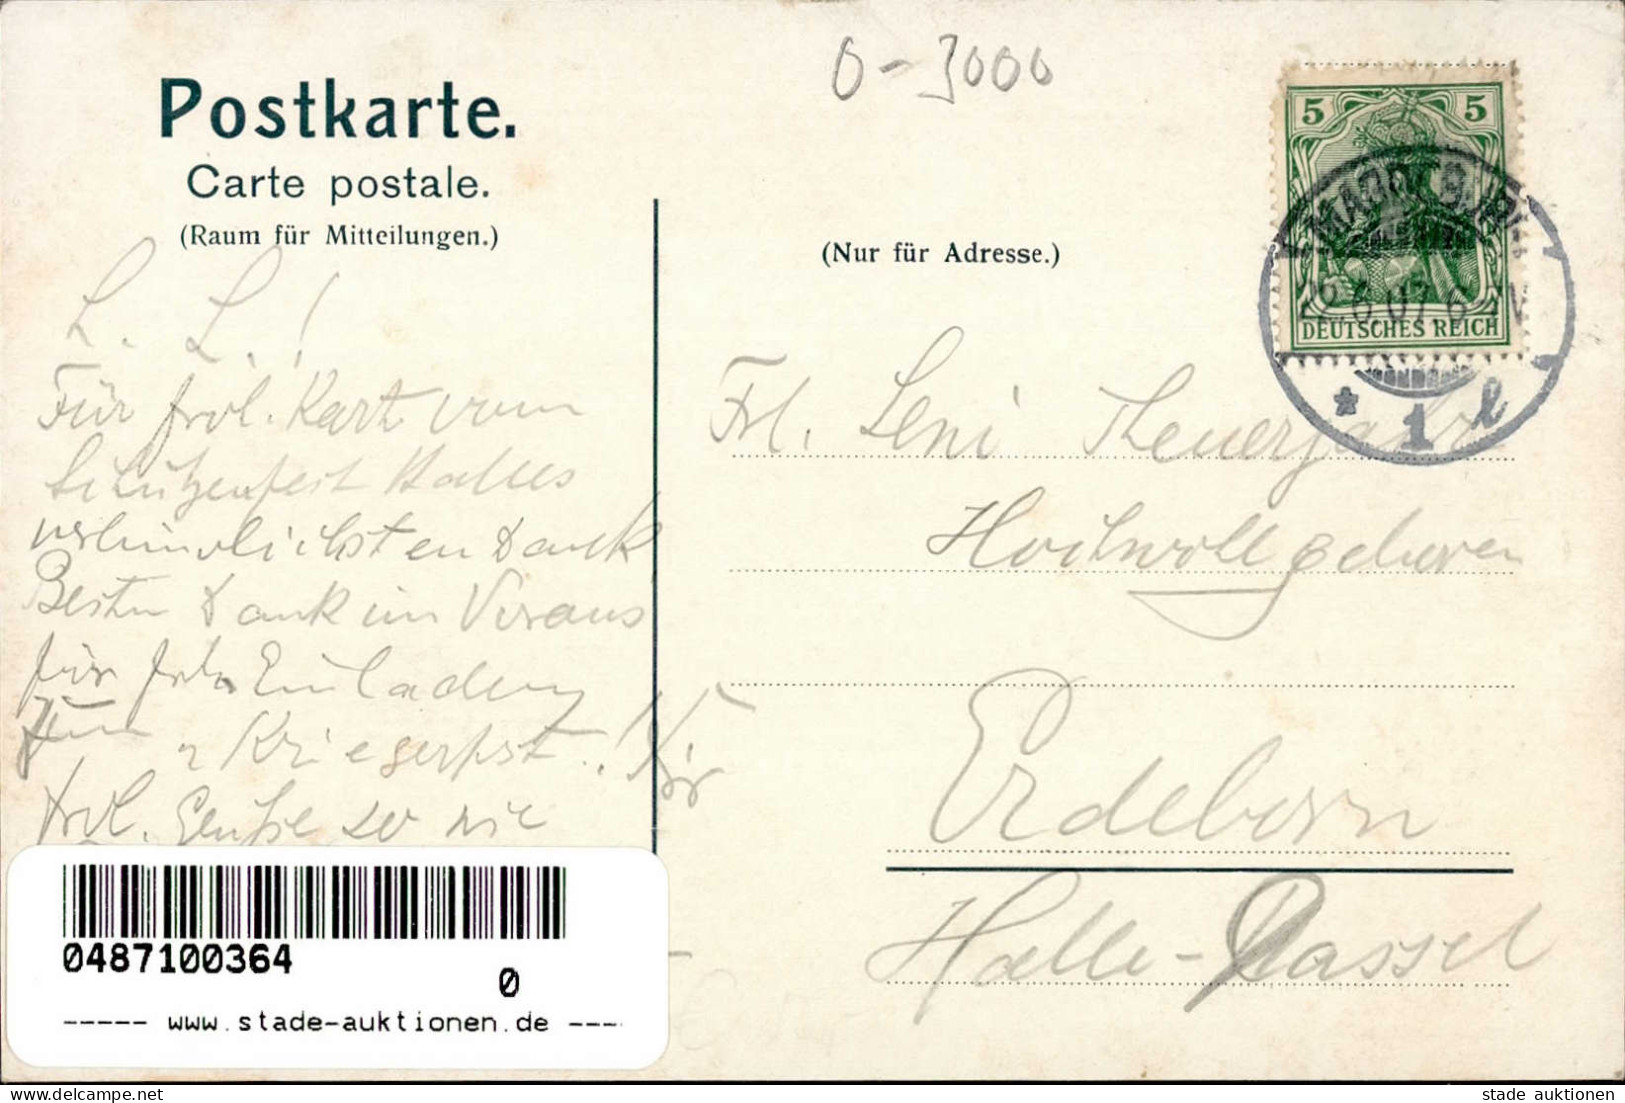 0-3000
Postkarte.
Carte postale.
(Raum für Mitteilungen.)
L. L.!
Für frdl. Kart vom
Schützenfest Halles
verbindlichsten Dank
Besten Dank im Voraus
für frdl. Einladung
zum „Kriegerfst.! Für
frdl. Grüße so wie
(Nur für Adresse.)
5 5
DEUTSCHES REICH
MAGDEBURG
22.6.07 6-7V
* 1 l
Frl. Leni Theuerjahr
Hochwollgeboren
Erdeborn
Halle-Cassel
0487100364
0
----- www.stade-auktionen.de ----
stade auktionen